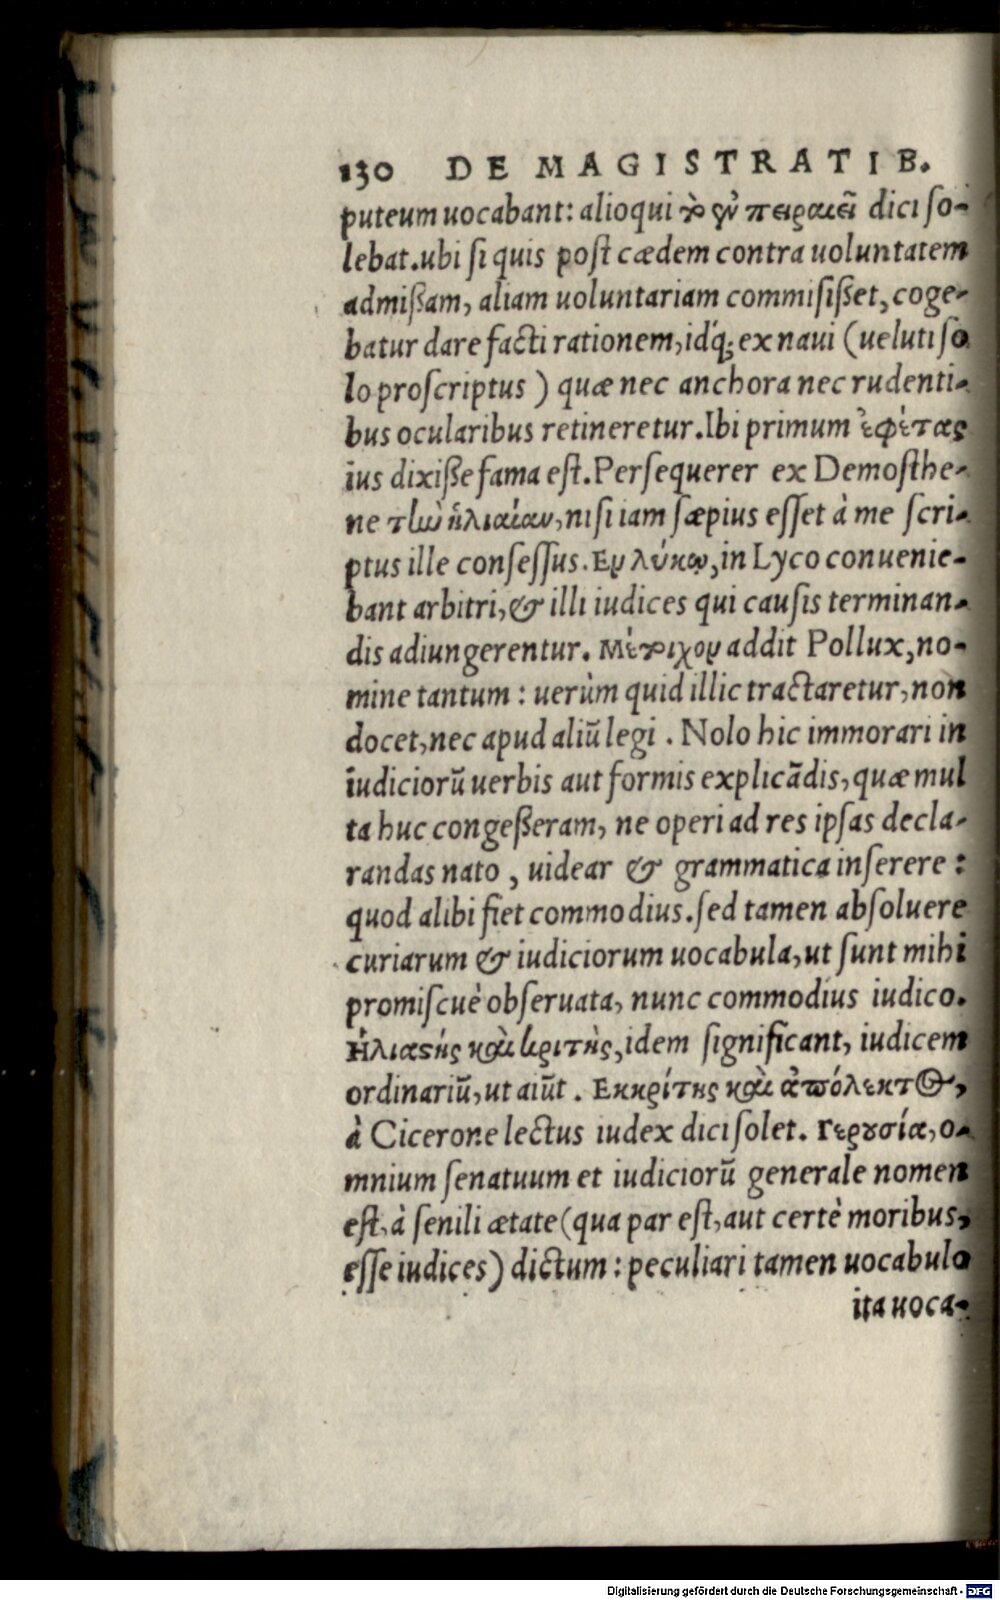 130 DE MAGISTRATIB.
puteum uocabant: alioqui τὸ ἐν πειραιεῖ dici ſo-
lebat. ubi ſi quis poſt cædem contra uoluntatem
admiſſam, aliam uoluntariam commiſiſſet, coge-
batur dare facti rationem, idq́; ex naui (ueluti ſo
lo proſcriptus) quæ nec anchora nec rudenti-
bus ocularibus retineretur. Ibi primum ἐφέτας
ius dixiſſe fama eſt. Perſequerer ex Demoſthe-
ne τὼ ἡλιαίαν, niſi iam ſæpius eſſet à me ſcri-
ptus ille conſeſſus. Εν λύκῳ, in Lyco conuenie-
bant arbitri, & illi iudices qui cauſis terminan-
dis adiungerentur. Μέτιχον addit Pollux, no-
mine tantum: uerùm quid illic tractaretur, non
docet, nec apud aliū legi. Nolo hic immorari in
iudiciorū uerbis aut formis explicādis, quæ mul
ta huc congeſſeram, ne operi ad res ipſas decla-
randas nato, uidear & grammatica inſerere:
quod alibi fiet commodius. ſed tamen abſoluere
curiarum & iudiciorum uocabula, ut ſunt mihi
promiſcuè obſeruata, nunc commodius iudico.
Ἡλιαστής καὶ κριτὴς, idem ſignificant, iudicem
ordinariū, ut aiūt. Εκκρίτης καὶ ἀπόλεκτος,
à Cicerone lectus iudex dici ſolet. Γερουσία, o-
mnium ſenatuum et iudiciorū generale nomen
eſt, à ſenili ætate (qua par eſt, aut certè moribus,
eſſe iudices) dictum: peculiari tamen uocabulo
ita uoca-
Digitalisierung gefördert durch die Deutsche Forschungsgemeinschaft - DFG